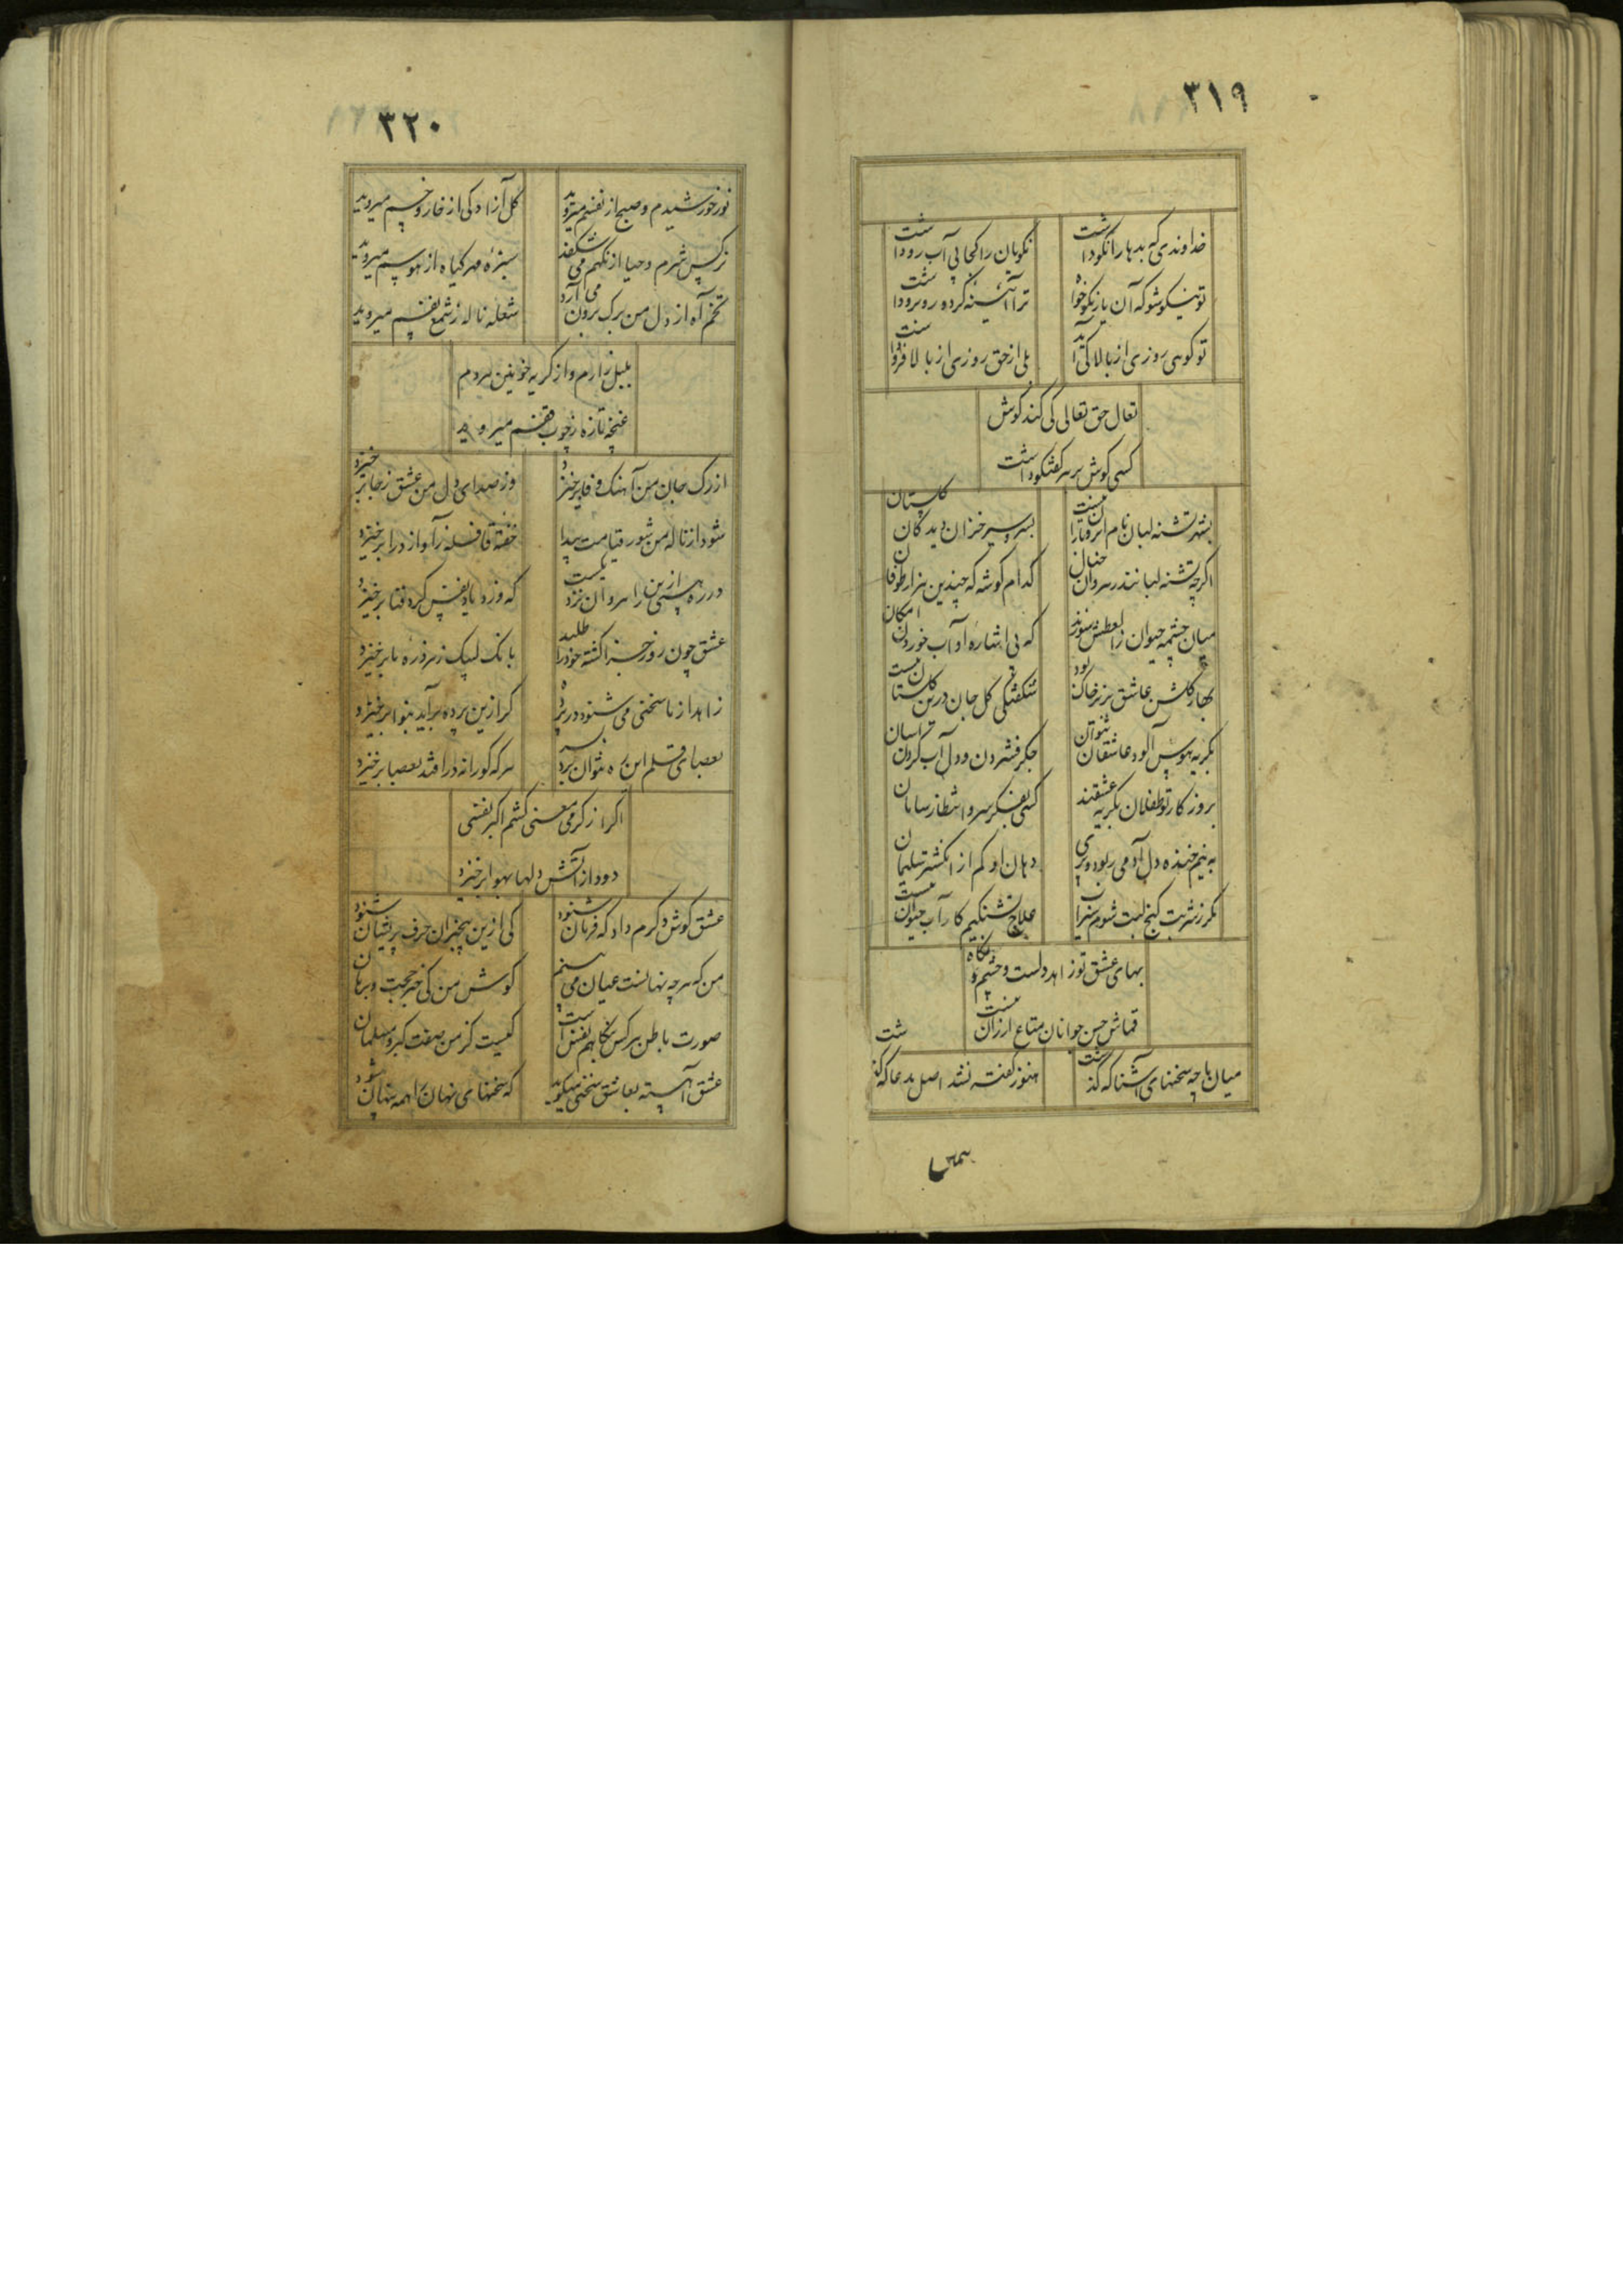 ۳۱۹
خداوندی که بدها را نکو داشت
نکویان را کجا بی آب رو داشت
تو نیکو شو که آن یار نکو خواه
ترا آئینه کرده روبرو داشت
تو گوئی روزی از بالا کی آید
بلی از حق روزی از بالا
تعال حق تعالی کی کند گوش
کسی گوش بر سر گفتگو داشت
بشهر تشنه لبان نام
بسر و سیر خزان دیدگان گلستان
اگرچه تشنه لبانند رهروان
کدام گوشه که چندین هزار طوفان
میان چشمه حیوان ز العطش سوزند
که بی اشاره او آب خوردن امکان
بهار گلشن عاشق بزیر خاک بود
شگفتگی گل جان درین گلستان نیست
بگریه هوس آلود عاشقان نتوان
جگر فشردن و دل آب کردن
بروزگار تو طفلان بگریه عشقند
کسی بفکر سر و
به نیم خنده دل آدمی ربود و پری
دهان او کم از انگشتر سلیمان
مگر ز شربت کنج لبت شوم سیراب
علاج تشنگیم کار آب حیوان نیست
بهای عشق تو زاهد دلست و چشم و نگاه
قماش حسن جوانان متاع ارزان نیست
میان ما چه سخنهای آشنا که گذشت
هنوز گفته نشد اصل مدعا که گذشت
۳۲۰
نور خورشیدم و صبح از نفسم میروید
گل آزادگی از خار و خسم میروید
نرگس شرم و حیا از نگهم می شکفد
سبزه مهر گیاه از هوسم میروید
تخم آه از دل من برگ برون می آرد
شعله ناله ز شمع نفسم میروید
بلبل زارم و از گریه خونین هر دم
غنچه تازه ز چوب قفسم میروید
از رگ جان من آهنگ وفا برخیزد
وز صدای دل من عشق ز جا برخیزد
شود از ناله من شور قیامت پیدا
خفته قافله ز آواز درا برخیزد
در ره پستی ازین راهروان نزدیکست
که ز دنبال نفس گرد فنا برخیزد
عشق چون روز جزا کشته خود را طلبد
بانگ لبیک ز هر ذره ما برخیزد
زاهد از ما سخنی می شنود در پرده
گر ازین پرده برآید بنوا برخیزد
بعصای قلم این ره نتوان برد بسر
هر که کورانه درافتد بعصا برخیزد
اگر از گرمی معنی کشم اکبر نفسی
دود از آتش دلها بهوا برخیزد
عشق گوش دگرم داد که فرمان شنود
کی ازین بیخبران حرف پریشان شنود
من که هر چه نهانست عیان می بینم
گوش من کی خبر حجت و برهان
صورت باطن هر کس بنگاهم نقش است
کیست کز من صفت گبر و مسلمان
عشق آهسته بعاشق سخنی میگوید
که سخنهای نهان را همه پنهان شنود